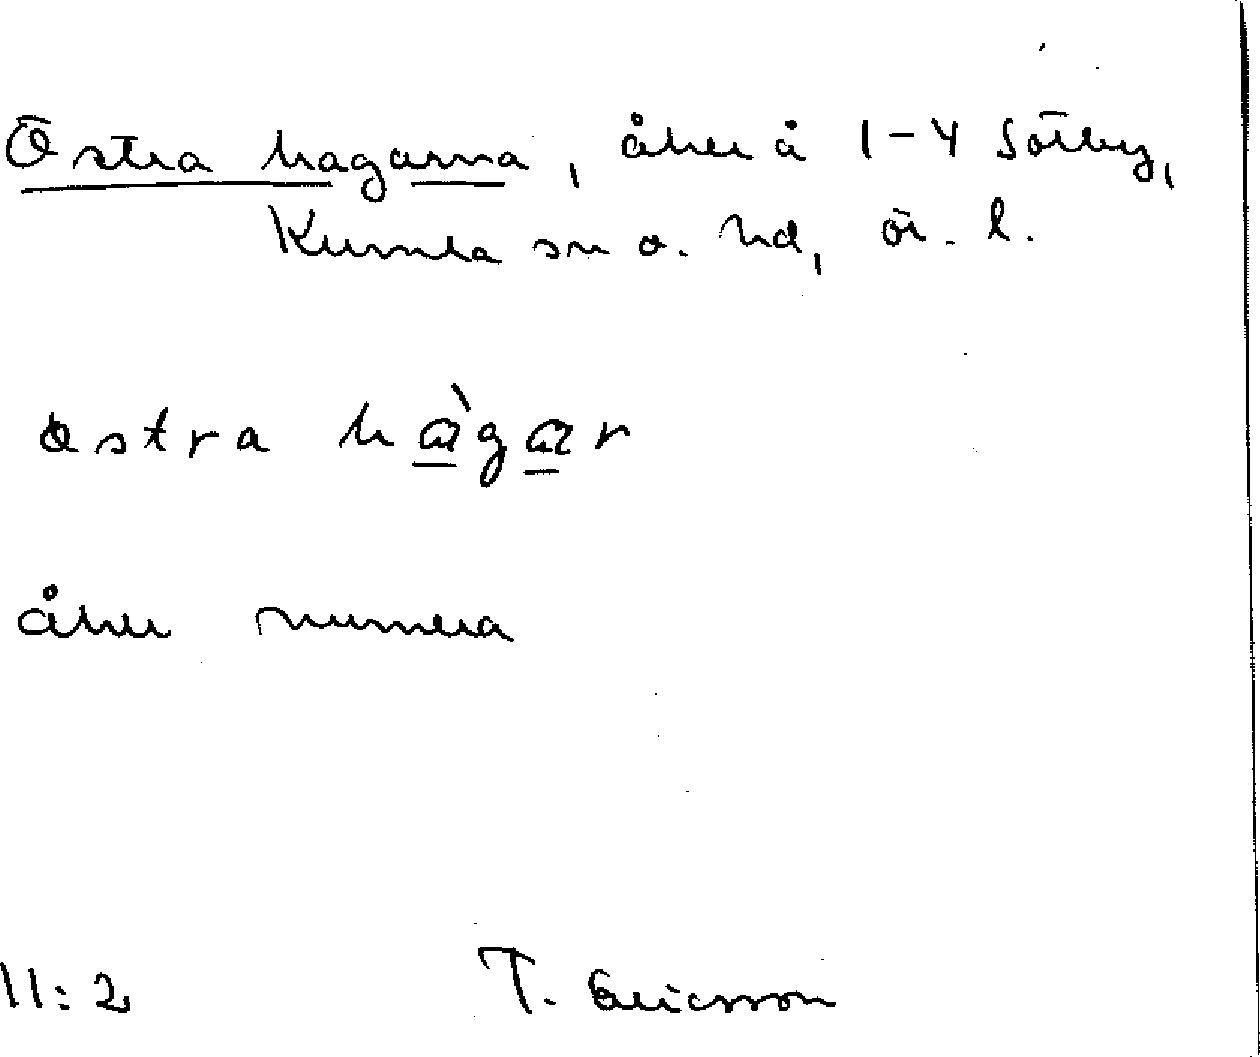 Östra hagarna, åker å 1-4 Sörby,
Kumla sn o. hd, ör. l.
östra hàgar
åker numera
11:2 T. Ericsson